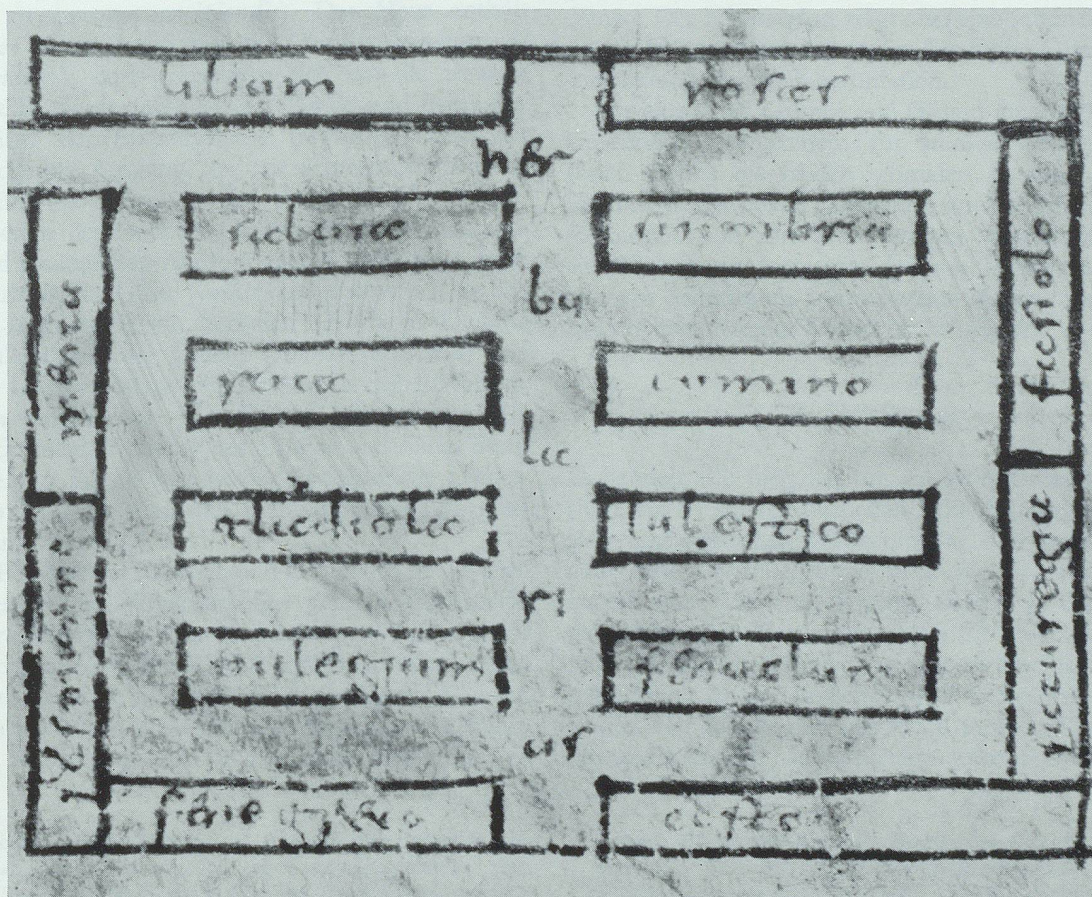 lilium
rosas
her
saluia
sisimbria
bu
ruta
cumino
la
gladiola
lubestico
ri
pulegium
feniculum
us
costo
menta
rosmarino
fasiolo
sataregia